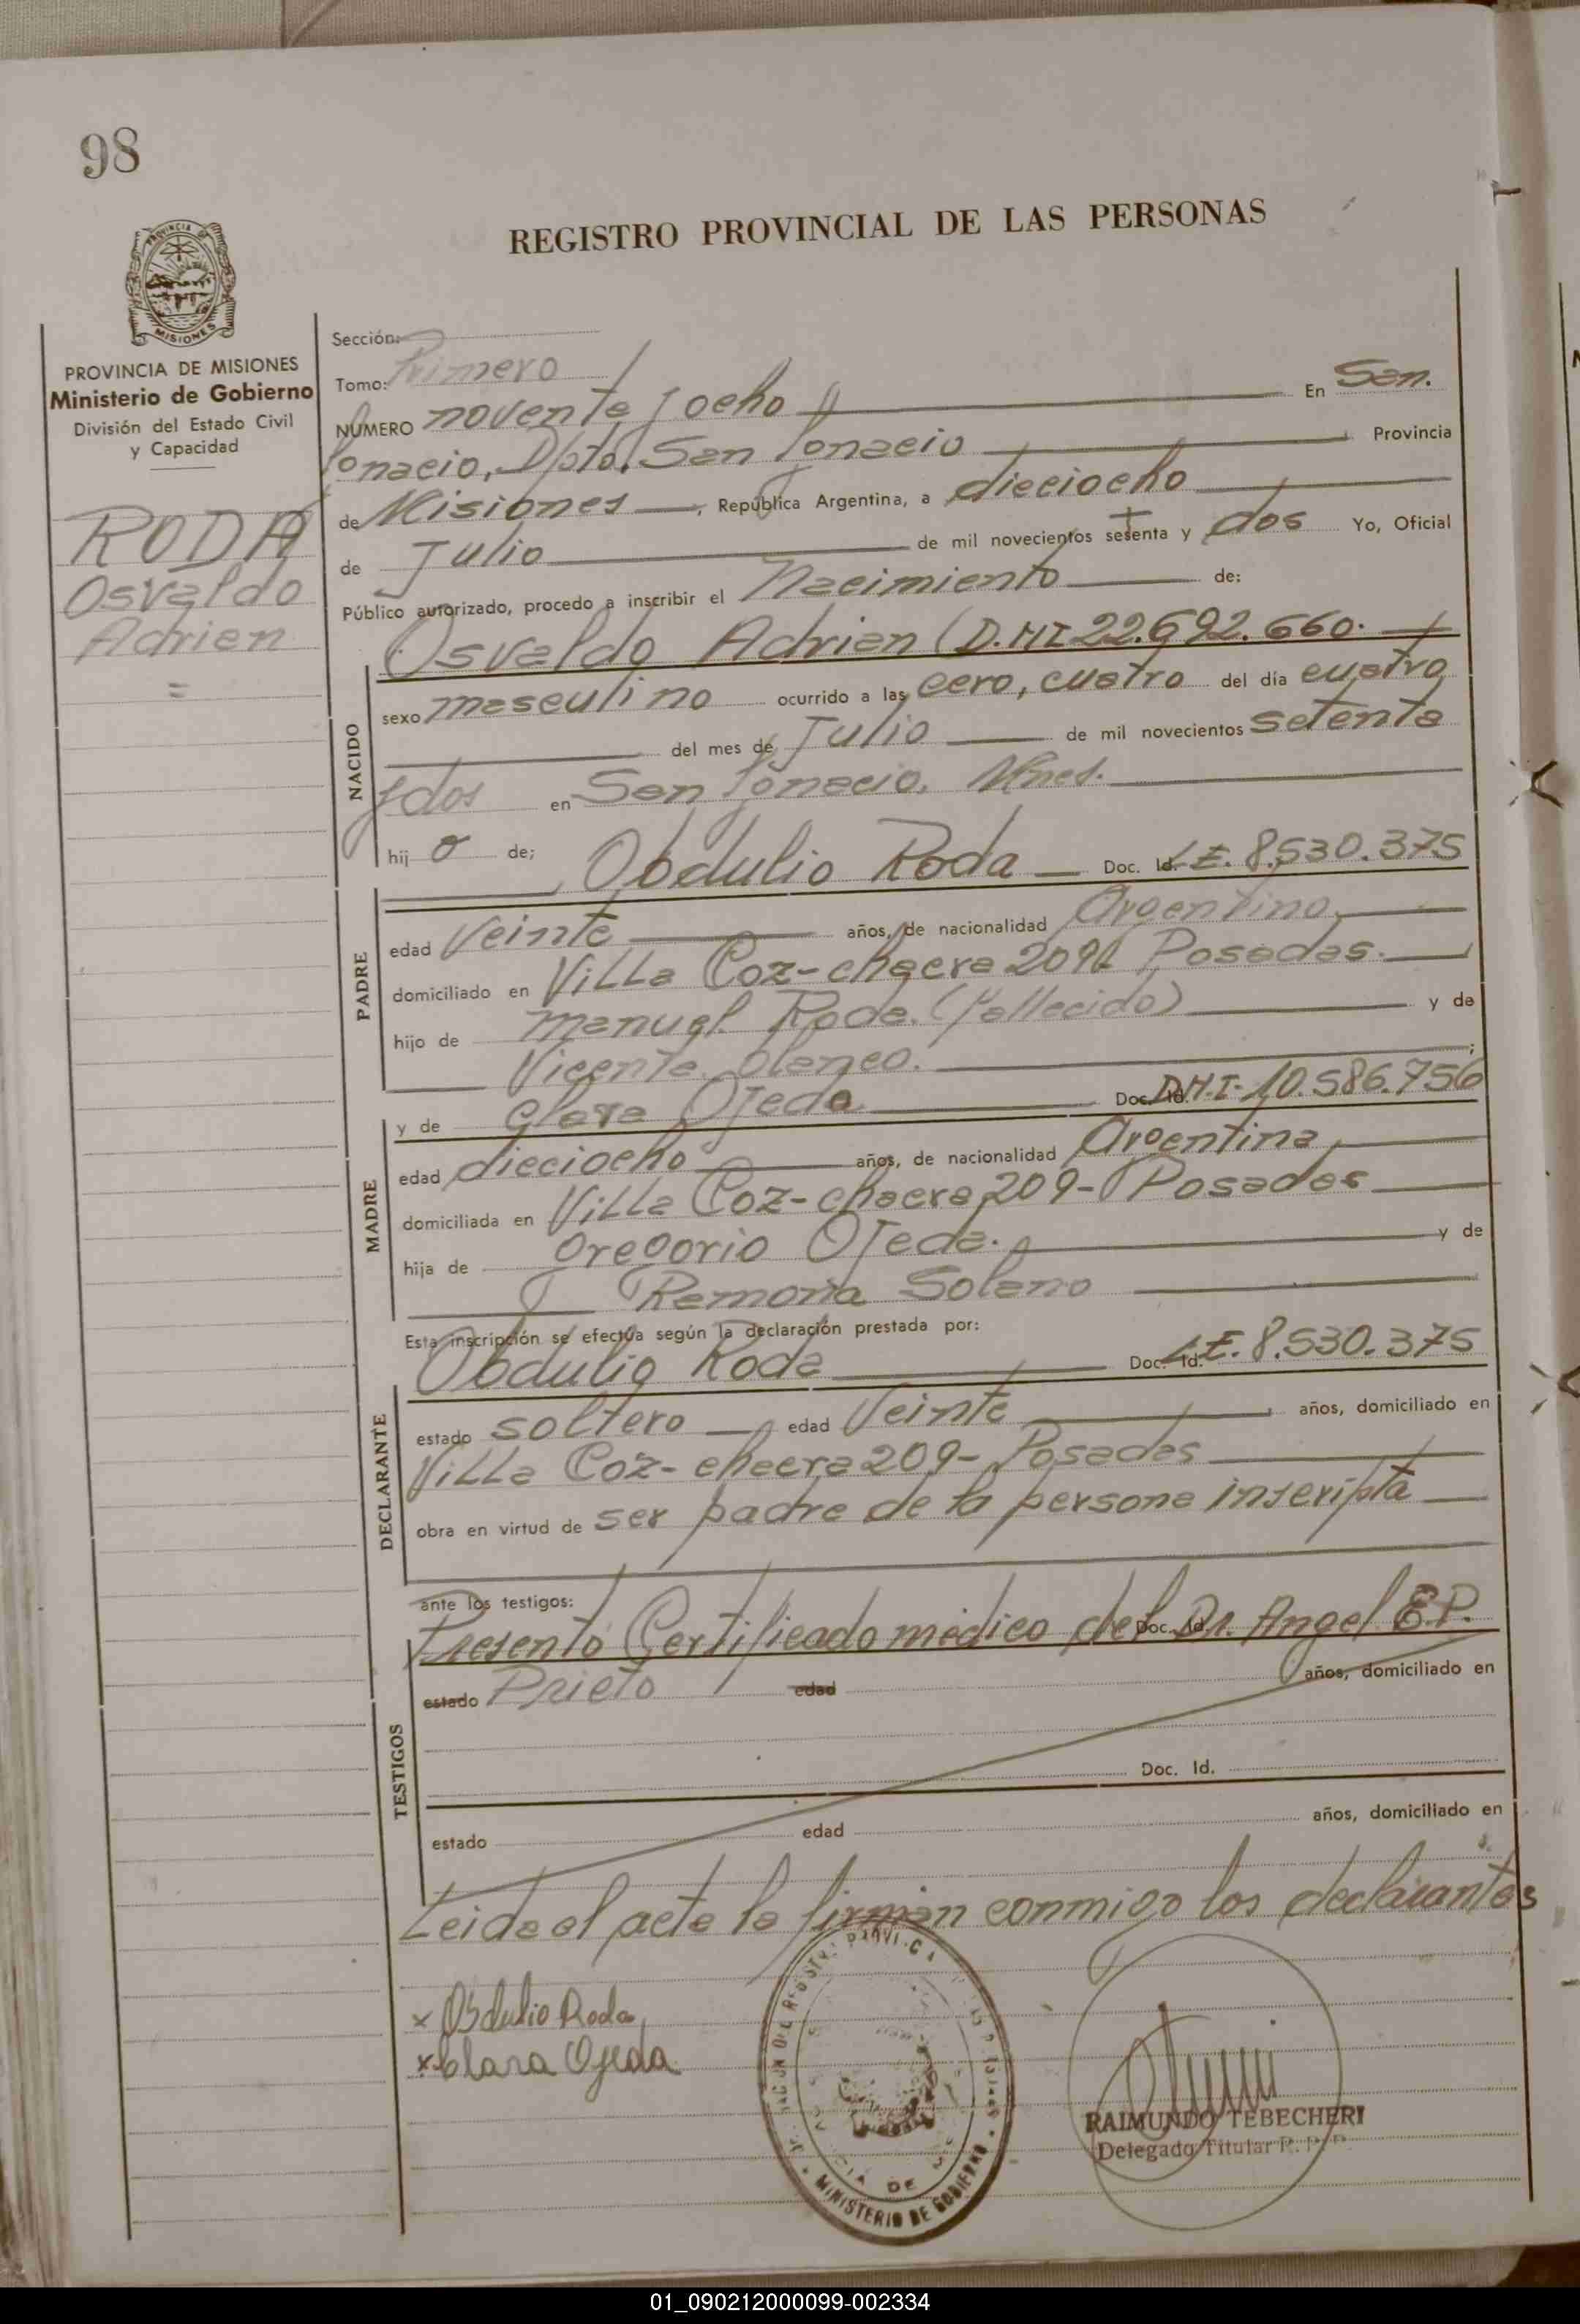 98
REGISTRO PROVINCIAL DE LAS PERSONAS
PROVINCIA DE MISIONES
Ministerio de Gobierno
División del Estado Civil
y Capacidad
RODA
Osvaldo
Adrian
=
Sección:
Tomo: Primero
NUMERO noventa y ocho En San
Ignacio, Dpto. San Ignacio Provincia
de Misiones, República Argentina, a dieciocho
de Julio de mil novecientos setenta y dos Yo, Oficial
Público autorizado, procedo a inscribir el Nacimiento de:
Osvaldo Adrian (D.NI 22.692.660.
NACIDO
sexo masculino ocurrido a las cero, cuatro del día cuatro
del mes de Julio de mil novecientos setenta
y dos en San Ignacio, Mnes.
hij o de; Obdulio Roda Doc. Id. L.E. 8.530.375
PADRE
edad Veinte años, de nacionalidad Argentino
domiciliado en Villa Coz-chacra 209 Posadas.
hijo de manuel Roda. (Fallecido) y de
Vicenta Olanco.
MADRE
y de Clara Ojeda Doc. Id. D.N.I- 10.586.756
edad dieciocho años, de nacionalidad Argentina
domiciliada en Villa Coz-chacra 209- Posadas
hija de gregorio Ojeda. y de
Ramona Solano
Esta inscripción se efectúa según la declaración prestada por:
Obdulio Roda Doc. Id. L.E. 8.530.375
DECLARANTE
estado soltero edad Veinte años, domiciliado en
Villa Coz- chacra 209- Posadas
obra en virtud de ser padre de la persona inscripta
ante los testigos:
Presentó Certificado médico del Doc. Id. Dr. Angel E.P.
TESTIGOS
estado Prieto edad años, domiciliado en
Doc. Id.
estado edad años, domiciliado en
Leida el acta la firman conmigo los declarantes
x Obdulio Roda
x Clara Ojeda
MINISTERIO DE GOBIERNO
RAIMUNDO TEBECHERI
Delegado Titular R. P. P.
01_090212000099-002334